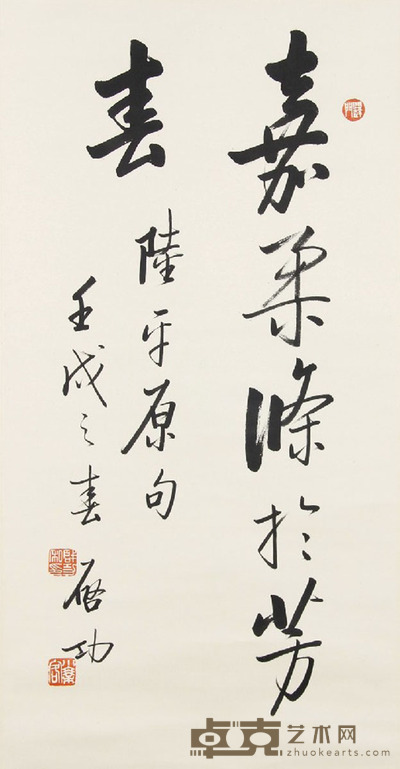 嘉柔條於芳
春
陸平原句
壬戌之春
啟功
卓克艺术网
zhuokearts.com